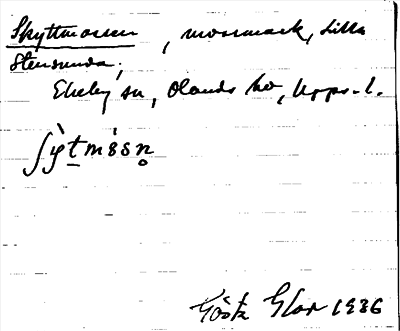 Skyttmossen, mossmark, Lilla
Stensunda,
Ekeby sn, Olands hd, Upps. l.
ʃỳt̲mósn̥
Gösta 1936